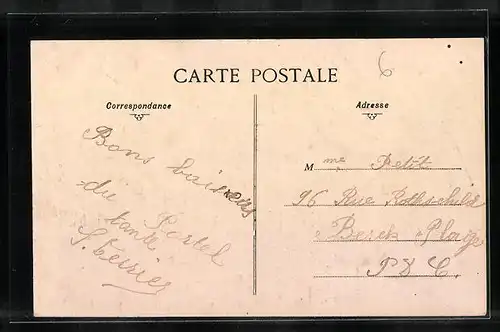 CARTE POSTALE
6
Correspondance
Adresse
Bons baisers
du Portel
tante
Mme Petit
96 Rue Rothschild
Berck Plage
P.d.C.